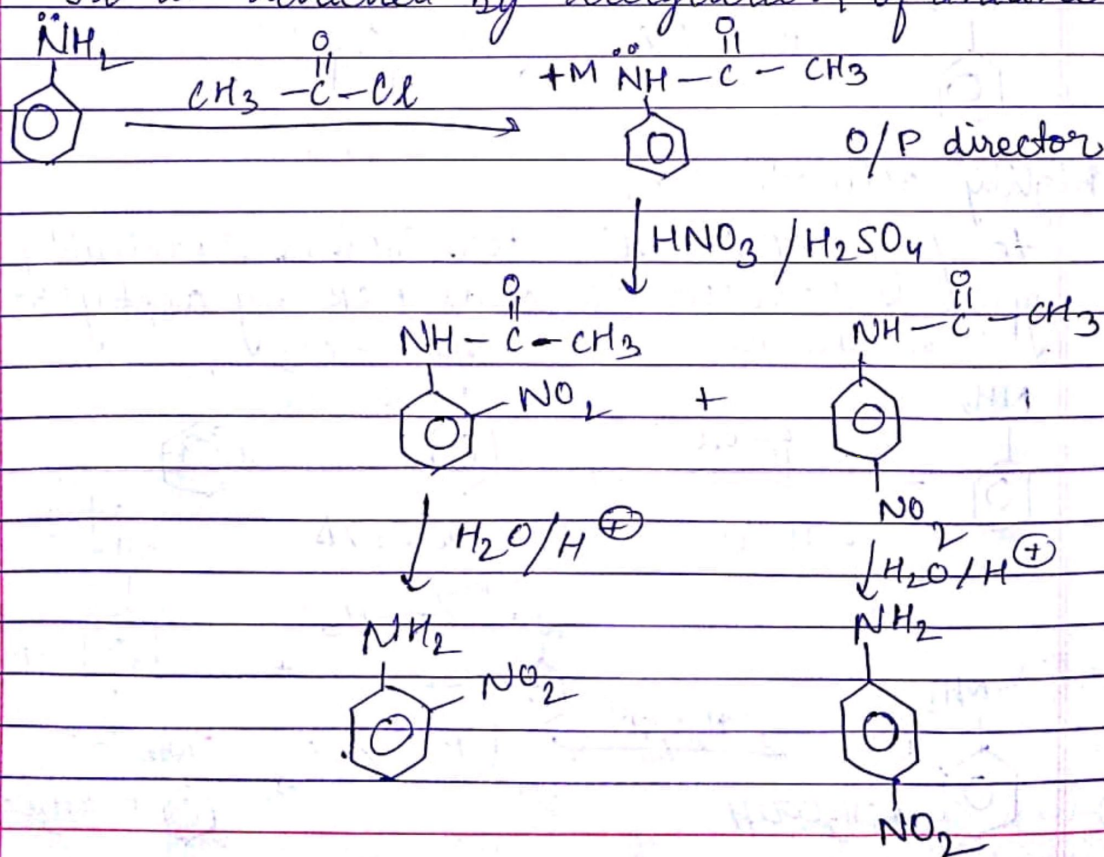 by of
N̈H2
CH3 -C-Cl
O
+M N̈H - C - CH3
O
O/P director
HNO3 / H2SO4
O
NH - C - CH3
NO2
+
O
NH - C - CH3
NO2
H2O/H⊕
H2O/H⊕
NH2
NO2
NH2
NO2